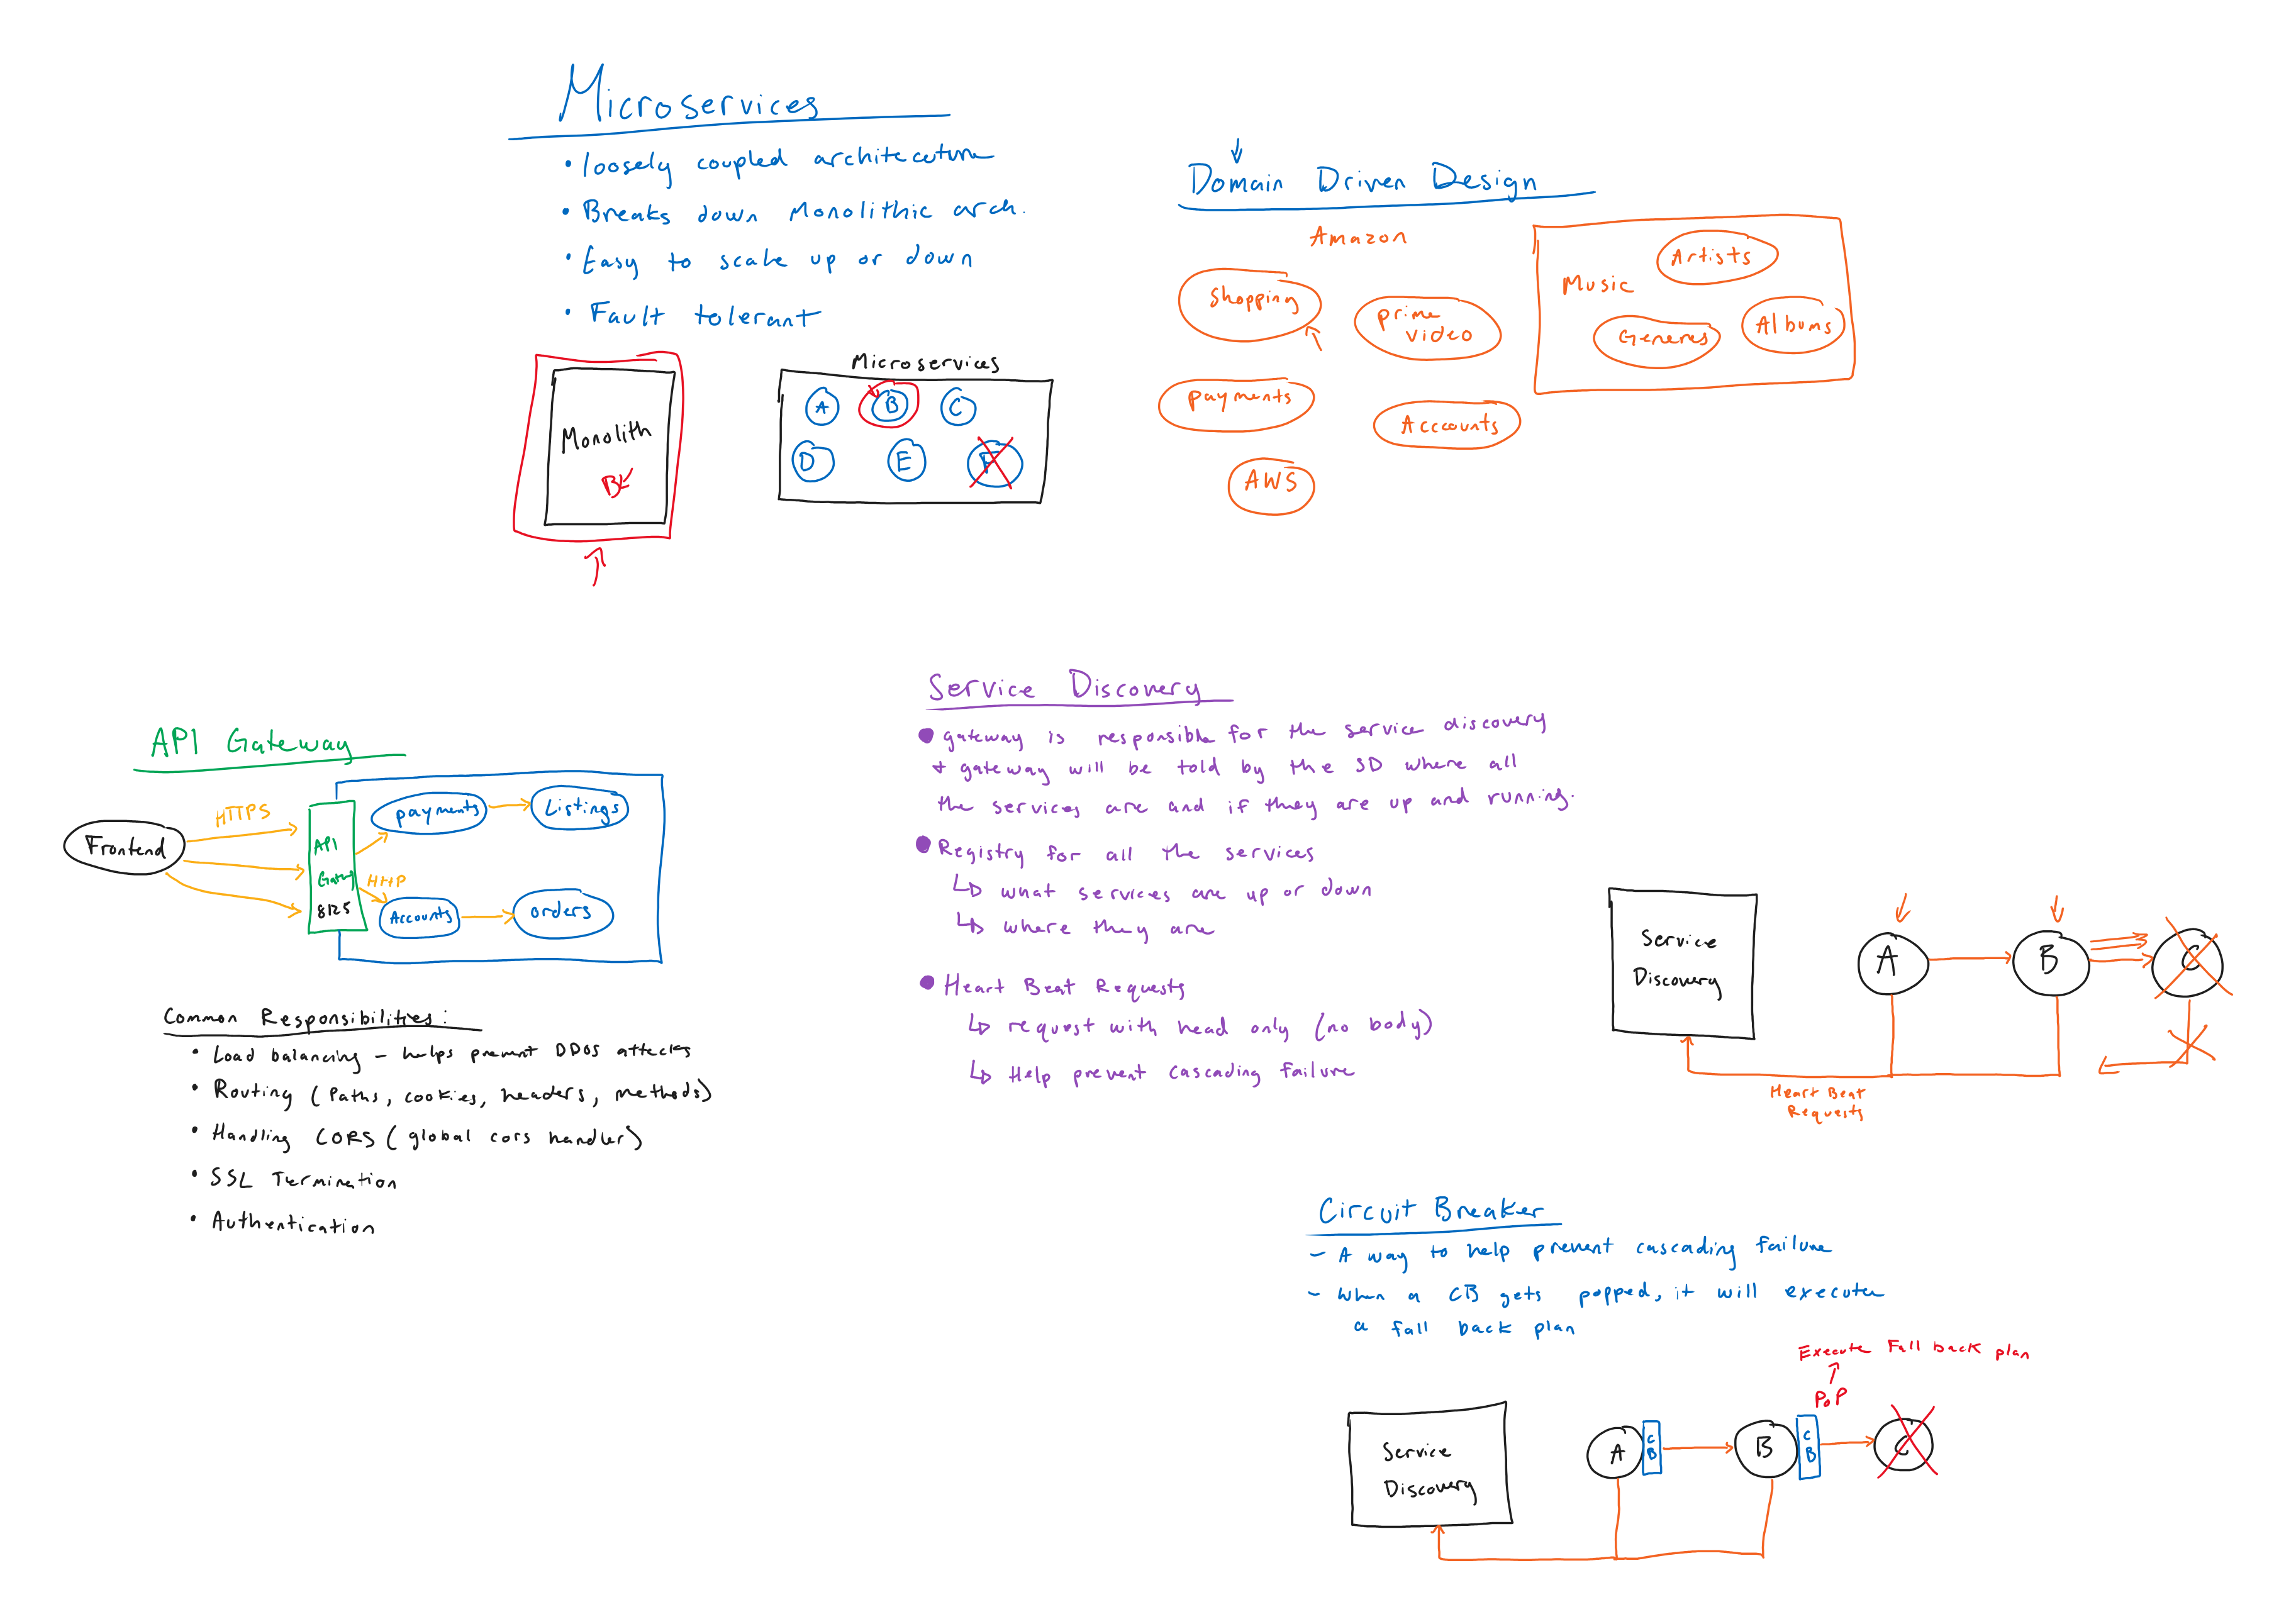 Microservices
• loosely coupled architecture
• Breaks down Monolithic arch.
• Easy to scale up or down
• Fault tolerant
Monolith
B
Microservices
A B C
D E F
Domain Driven Design
Amazon
Shopping
prime
video
payments
Acccounts
AWS
Music
Artists
Generes
Albums
API Gateway
HTTPS
Frontend
API
8125
HTTP
payments
Listings
Accounts
orders
Common Responsibilities:
• Load balancing - helps prevent DDOS attacks
• Routing (Paths, cookies, headers, methods)
• Handling CORS (global cors handler)
• SSL Termination
• Authentication
Service Discovery
• gateway is responsible for the service discovery
+ gateway will be told by the SD where all
the services are and if they are up and running.
• Registry for all the services
↳ what services are up or down
↳ where they are
• Heart Beat Requests
↳ request with head only (no body)
↳ Help prevent cascading failure
Service
Discovery
A
B
C
Heart Beat
Requests
Circuit Breaker
- A way to help prevent cascading failure
- When a CB gets popped, it will execute
a fall back plan
Execute Fall back plan
PoP
Service
Discovery
A
CB
B
CB
C